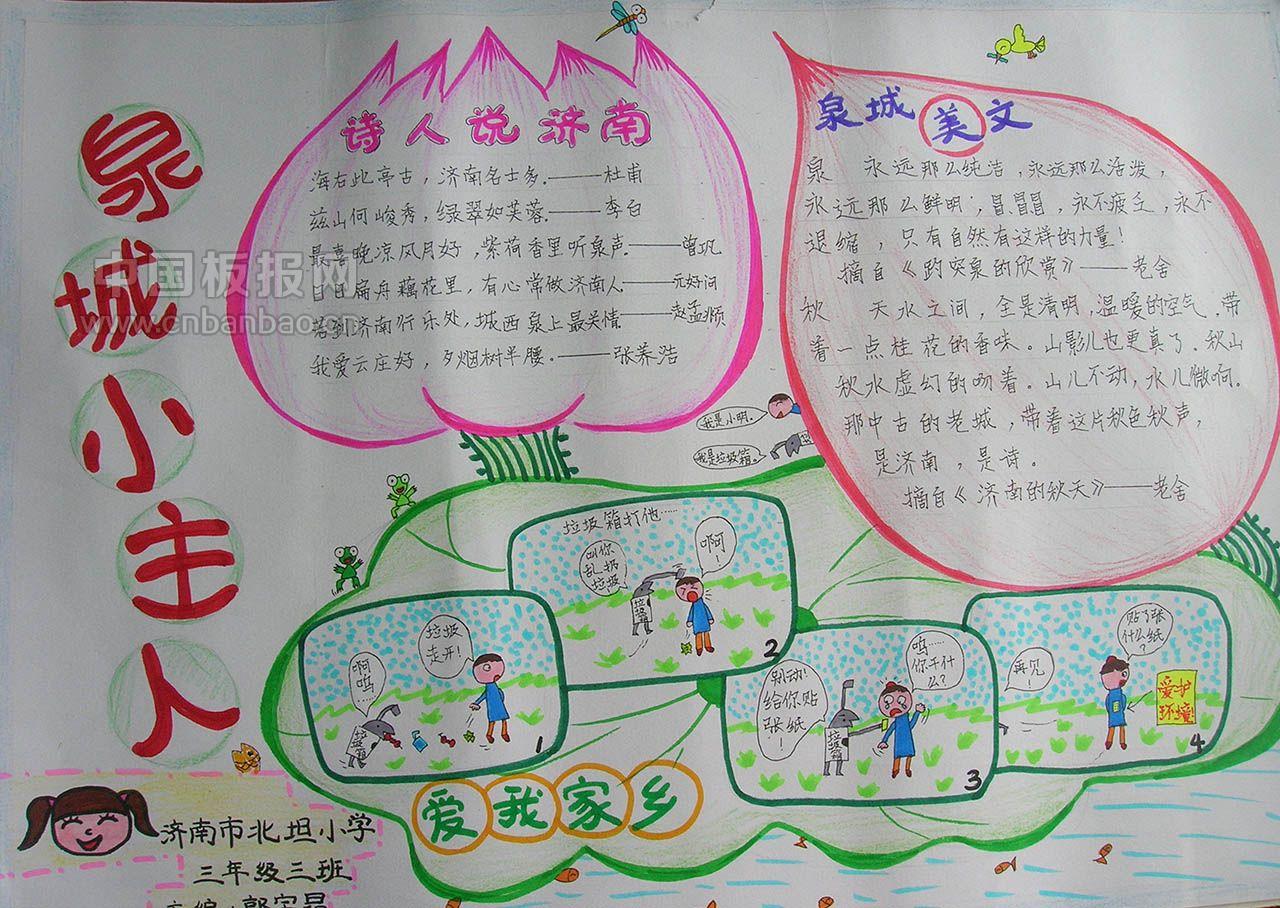 泉城小主人
诗人说济南
海右此亭古，济南名士多.——杜甫
兹山何峻秀，绿翠如芙蓉.——李白
最喜晚凉风月好，紫荷香里听泉声.——曾巩
日日扁舟藕花里，有心常做济南人.——元好问
若到济南行乐处，城西泉上最关情——赵孟頫
我爱云庄好，夕烟树半腰.——张养浩
泉城美文
泉 永远那么纯洁，永远那么活泼，
永远那么鲜明；冒冒冒，永不疲乏，永不
退缩，只有自然有这样的力量！
摘自《趵突泉的欣赏》——老舍
秋 天水之间，全是清明，温暖的空气，带
着一点桂花的香味。山影儿也更真了.秋山
秋水虚幻的吻着。山儿不动，水儿微响。
那中古的老城，带着这片秋色秋声，
是济南，是诗。
摘自《济南的秋天》——老舍
我是小明。
我是垃圾箱。
啊呜
垃圾走开！
垃圾箱
1
垃圾箱打他……
叫你乱扔垃圾
啊！
垃圾箱
2
别动！给你贴张纸！
呜……你干什么？
垃圾箱
3
再见！
贴了张什么纸？
爱护环境！
4
爱我家乡
济南市北坦小学
三年级三班
中国板报网
www.cnbanbao.cn